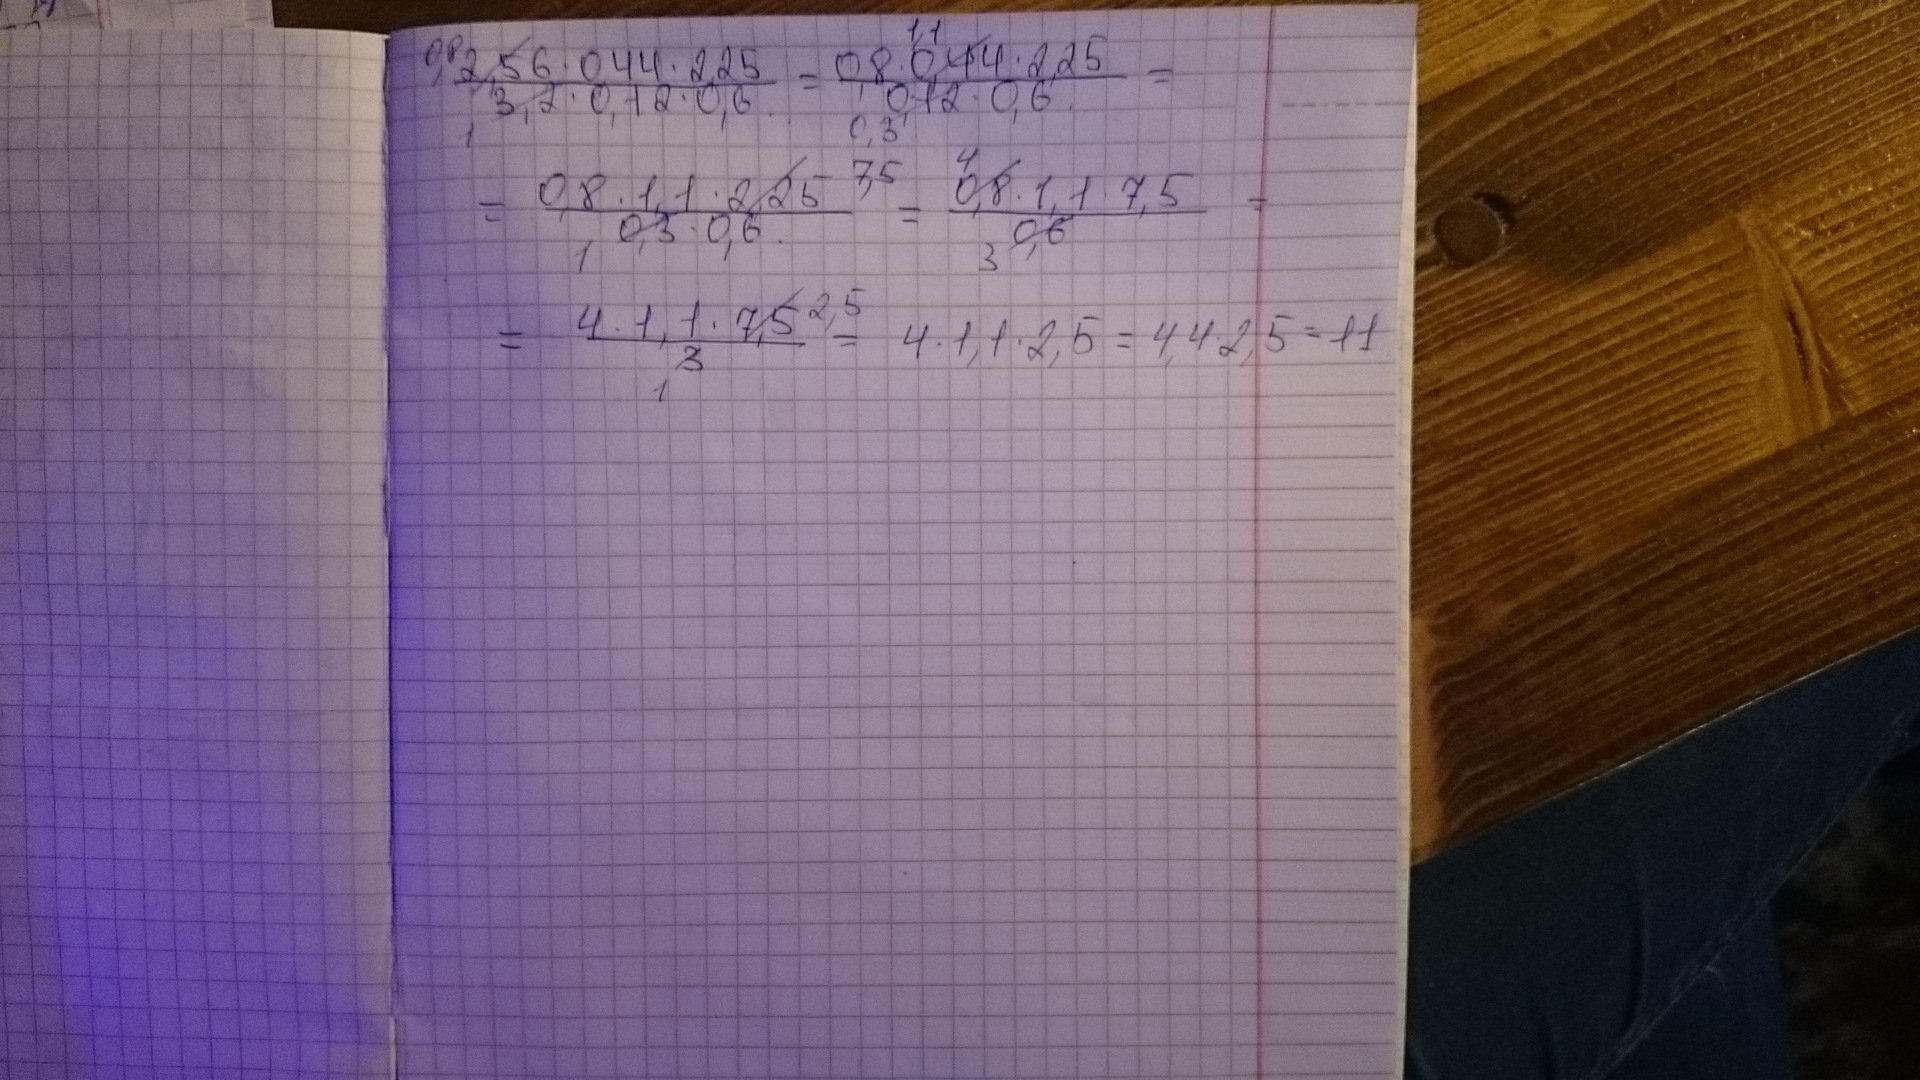 0,8 2,56 · 0,44 · 2,25 / 3,2 · 0,12 · 0,6 = 0,8 · 0,44 · 2,25 / 0,12 · 0,6 =
1 1,1 0,3
= 0,8 · 1,1 · 2,25 7,5 / 0,3 · 0,6 = 4 0,8 · 1,1 · 7,5 / 0,6 =
1 3
= 4 · 1,1 · 7,5 2,5 / 3 = 4 · 1,1 · 2,5 = 4,4 · 2,5 = 11
1